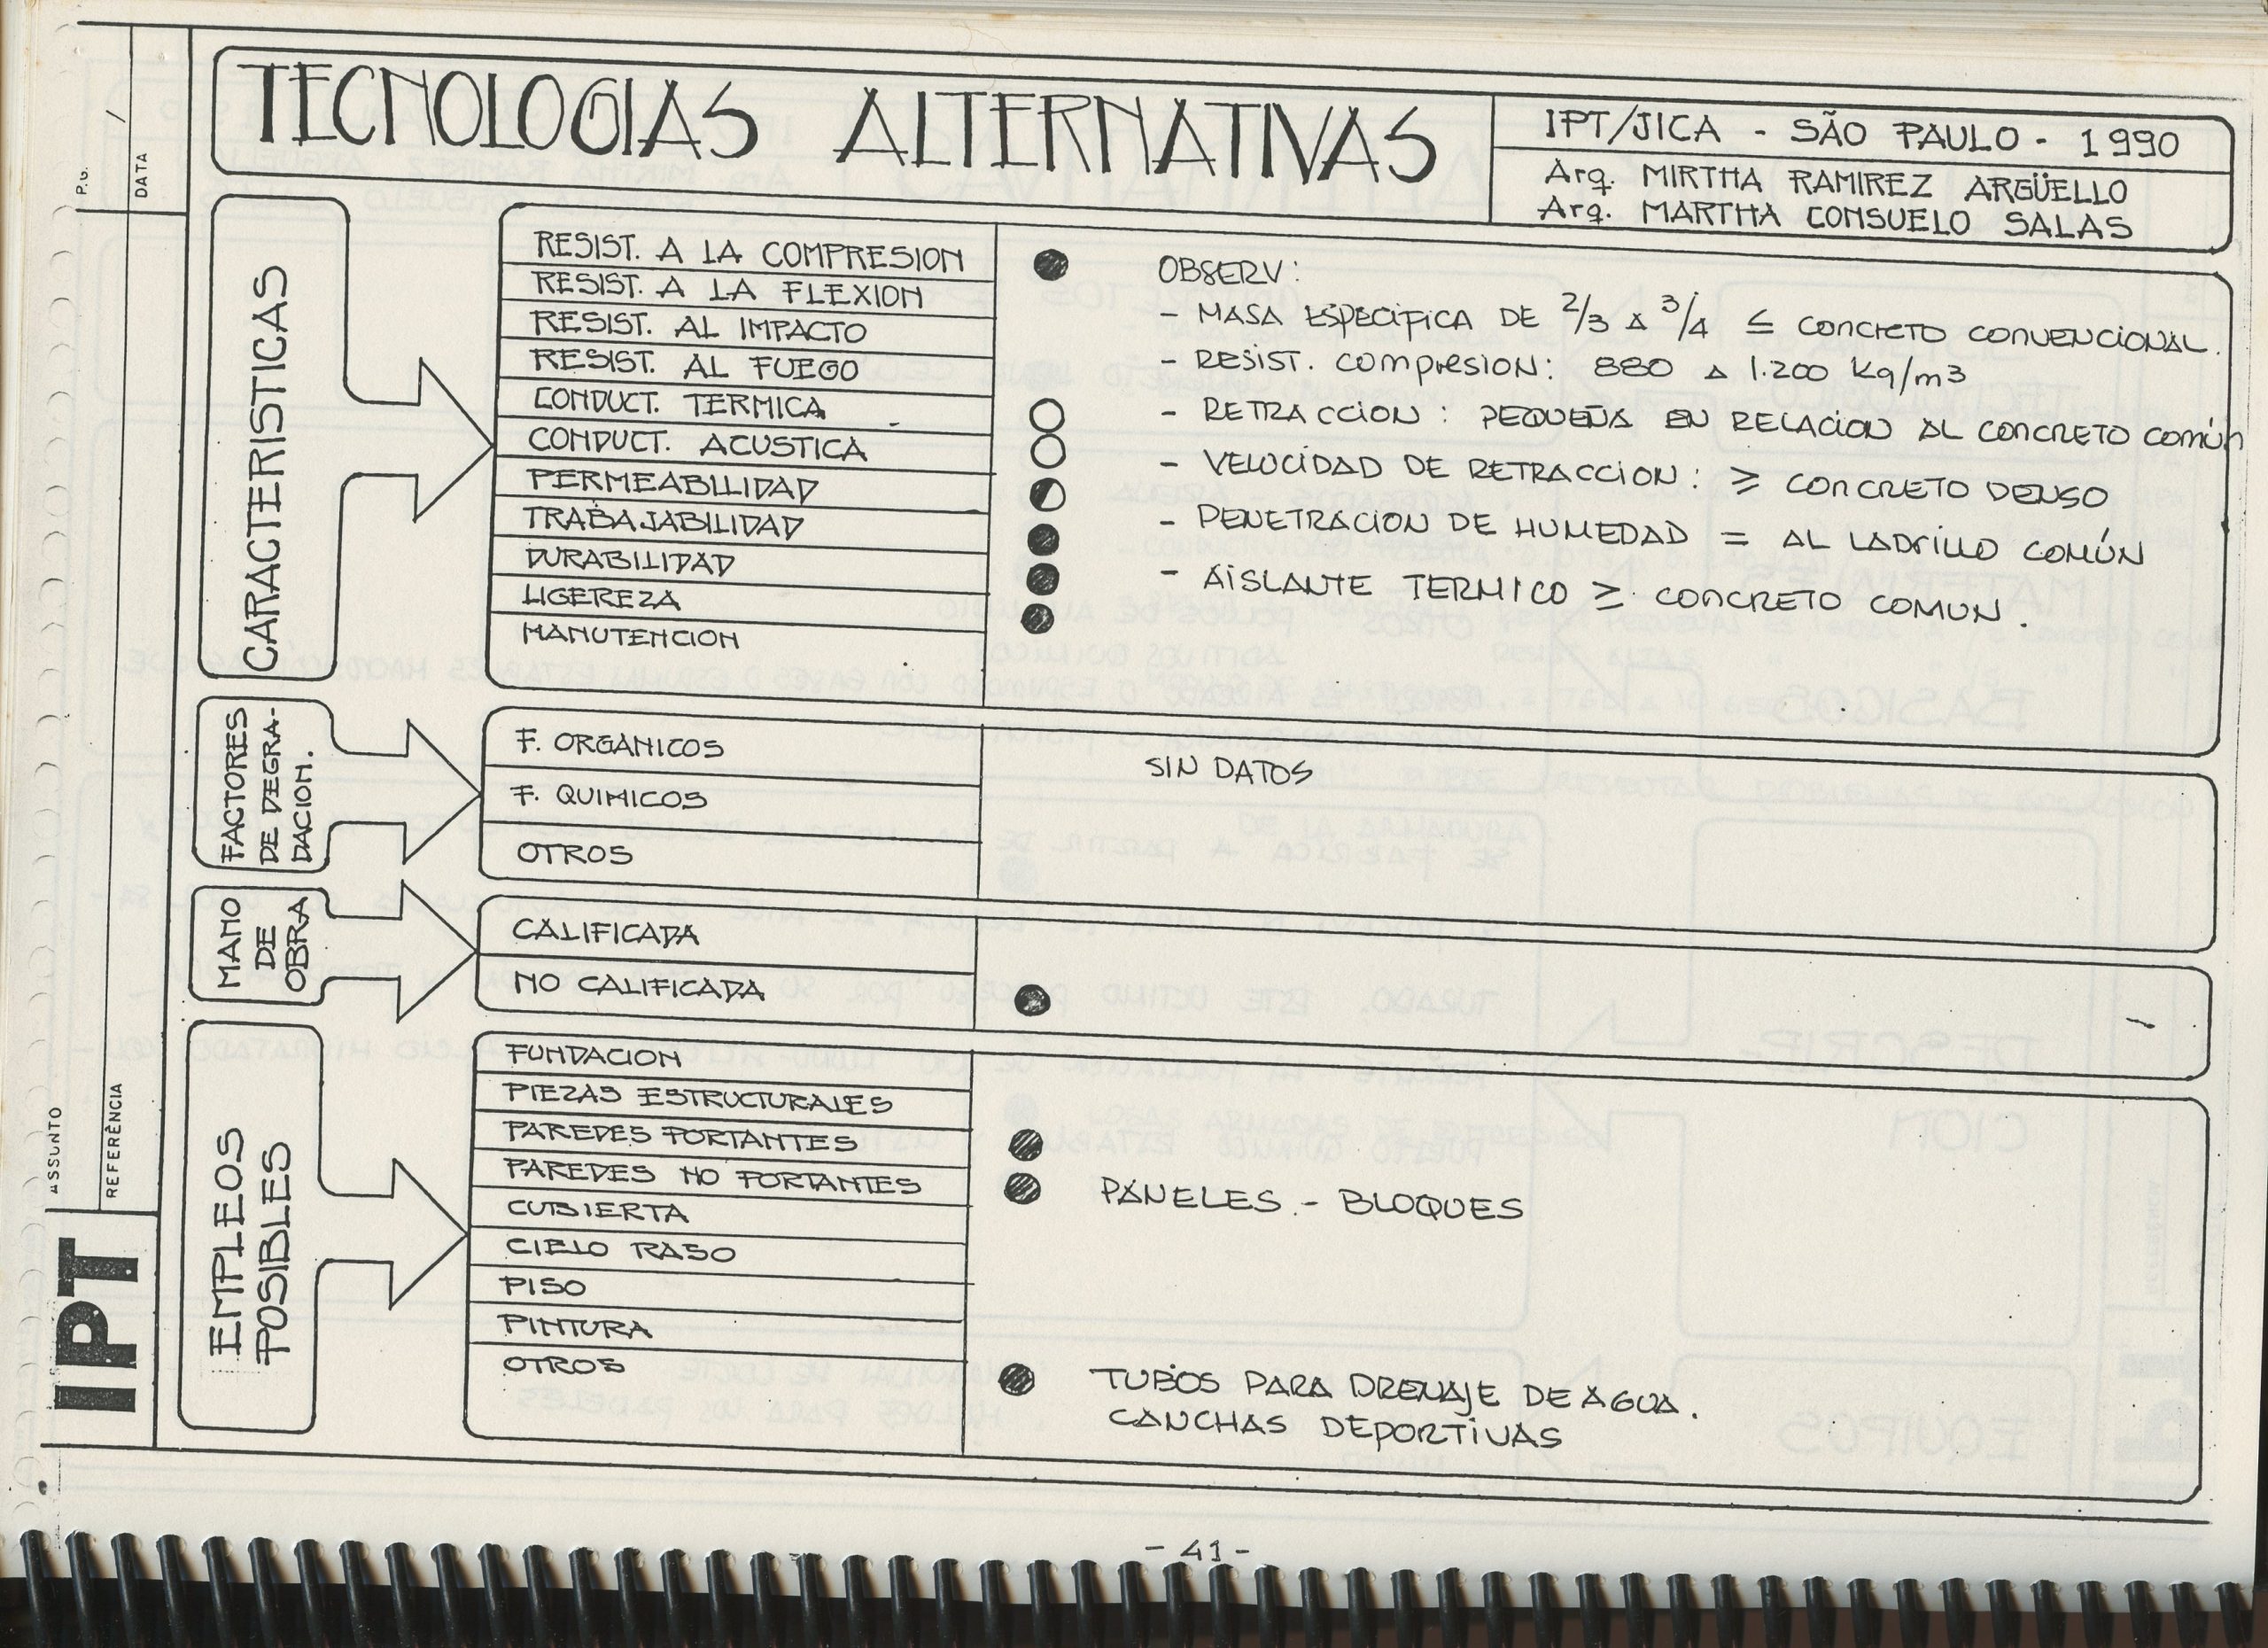 TECNOLOGIAS ALTERNATIVAS
IPT/JICA - SÃO PAULO - 1990
Arq. MIRTHA RAMIREZ ARGÜELLO
Arq. MARTHA CONSUELO SALAS
P.G.
DATA
/
CARACTERISTICAS
RESIST. A LA COMPRESION
RESIST. A LA FLEXION
RESIST. AL IMPACTO
RESIST. AL FUEGO
CONDUCT. TERMICA
CONDUCT. ACUSTICA
PERMEABILIDAD
TRABAJABILIDAD
DURABILIDAD
LIGEREZA
MANUTENCION
OBSERV:
- MASA ESPECIFICA DE 2/3 A 3/4 ≤ CONCRETO CONVENCIONAL.
- RESIST. COMPRESION: 880 A 1.200 Kg/m3
- RETRACCION: PEQUEÑA EN RELACION AL CONCRETO COMÚN
- VELOCIDAD DE RETRACCION: ≥ CONCRETO DENSO
- PENETRACION DE HUMEDAD = AL LADRILLO COMÚN
- AISLANTE TERMICO ≥ CONCRETO COMUN.
FACTORES
DE DEGRA-
DACION.
F. ORGANICOS
F. QUIMICOS
OTROS
SIN DATOS
MANO
DE
OBRA
CALIFICADA
NO CALIFICADA
EMPLEOS
POSIBLES
FUNDACION
PIEZAS ESTRUCTURALES
PAREDES PORTANTES
PAREDES NO PORTANTES
CUBIERTA
CIELO RASO
PISO
PINTURA
OTROS
PANELES - BLOQUES
TUBOS PARA DRENAJE DE AGUA.
CANCHAS DEPORTIVAS
ASSUNTO
REFERÊNCIA
IPT
- 41 -